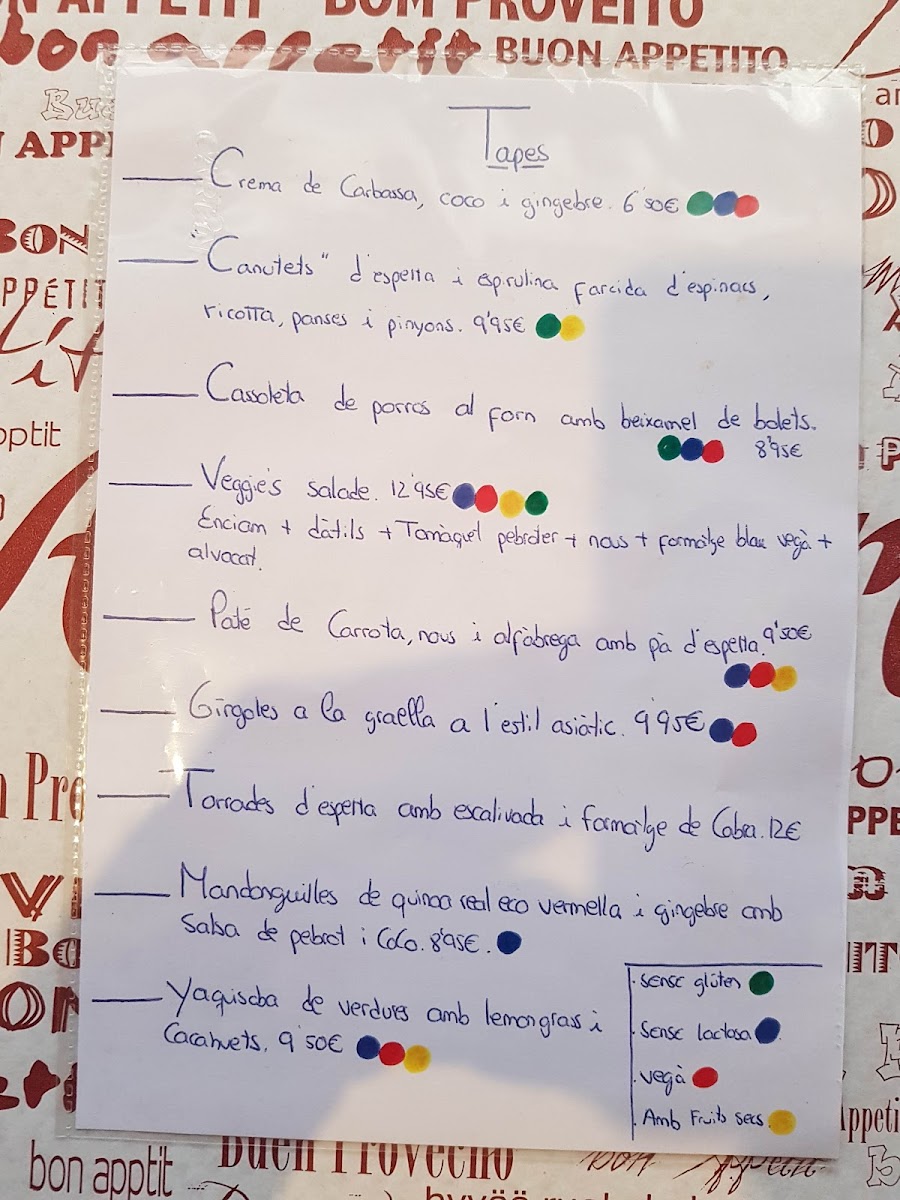 BON APPETIT
BOM PROVEITO
bon appetit
BUON APPETITO
Tapes
Crema de Carbassa, coco i gingebre. 6'50€
Canutets" d'espelta i espirulina farcida d'espinacs,
ricotta, panses i pinyons. 9'95€
Cassoleta de porros al forn amb beixamel de bolets.
8'95€
Veggie's salade. 12'95€
Enciam + dàtils + Tomàquet pebroter + nous + formatge blau vegà +
alvocat.
Paté de Carrota, nous i alfàbrega amb pà d'espelta. 9'50€
Girgoles a la graella a l'estil asiàtic. 9'95€
Torrades d'espelta amb escalivada i formatge de Cabra. 12€
Mandonguilles de quinoa real eco vermella i gingebre amb
Salsa de pebrot i CoCo. 8'95€.
Yaquisoba de verdures amb lemongrass i
Cacahuets. 9'50€
. sense glúten
. sense lactosa
. vegà
. Amb Fruits secs
bon apptit
Buen Provecho